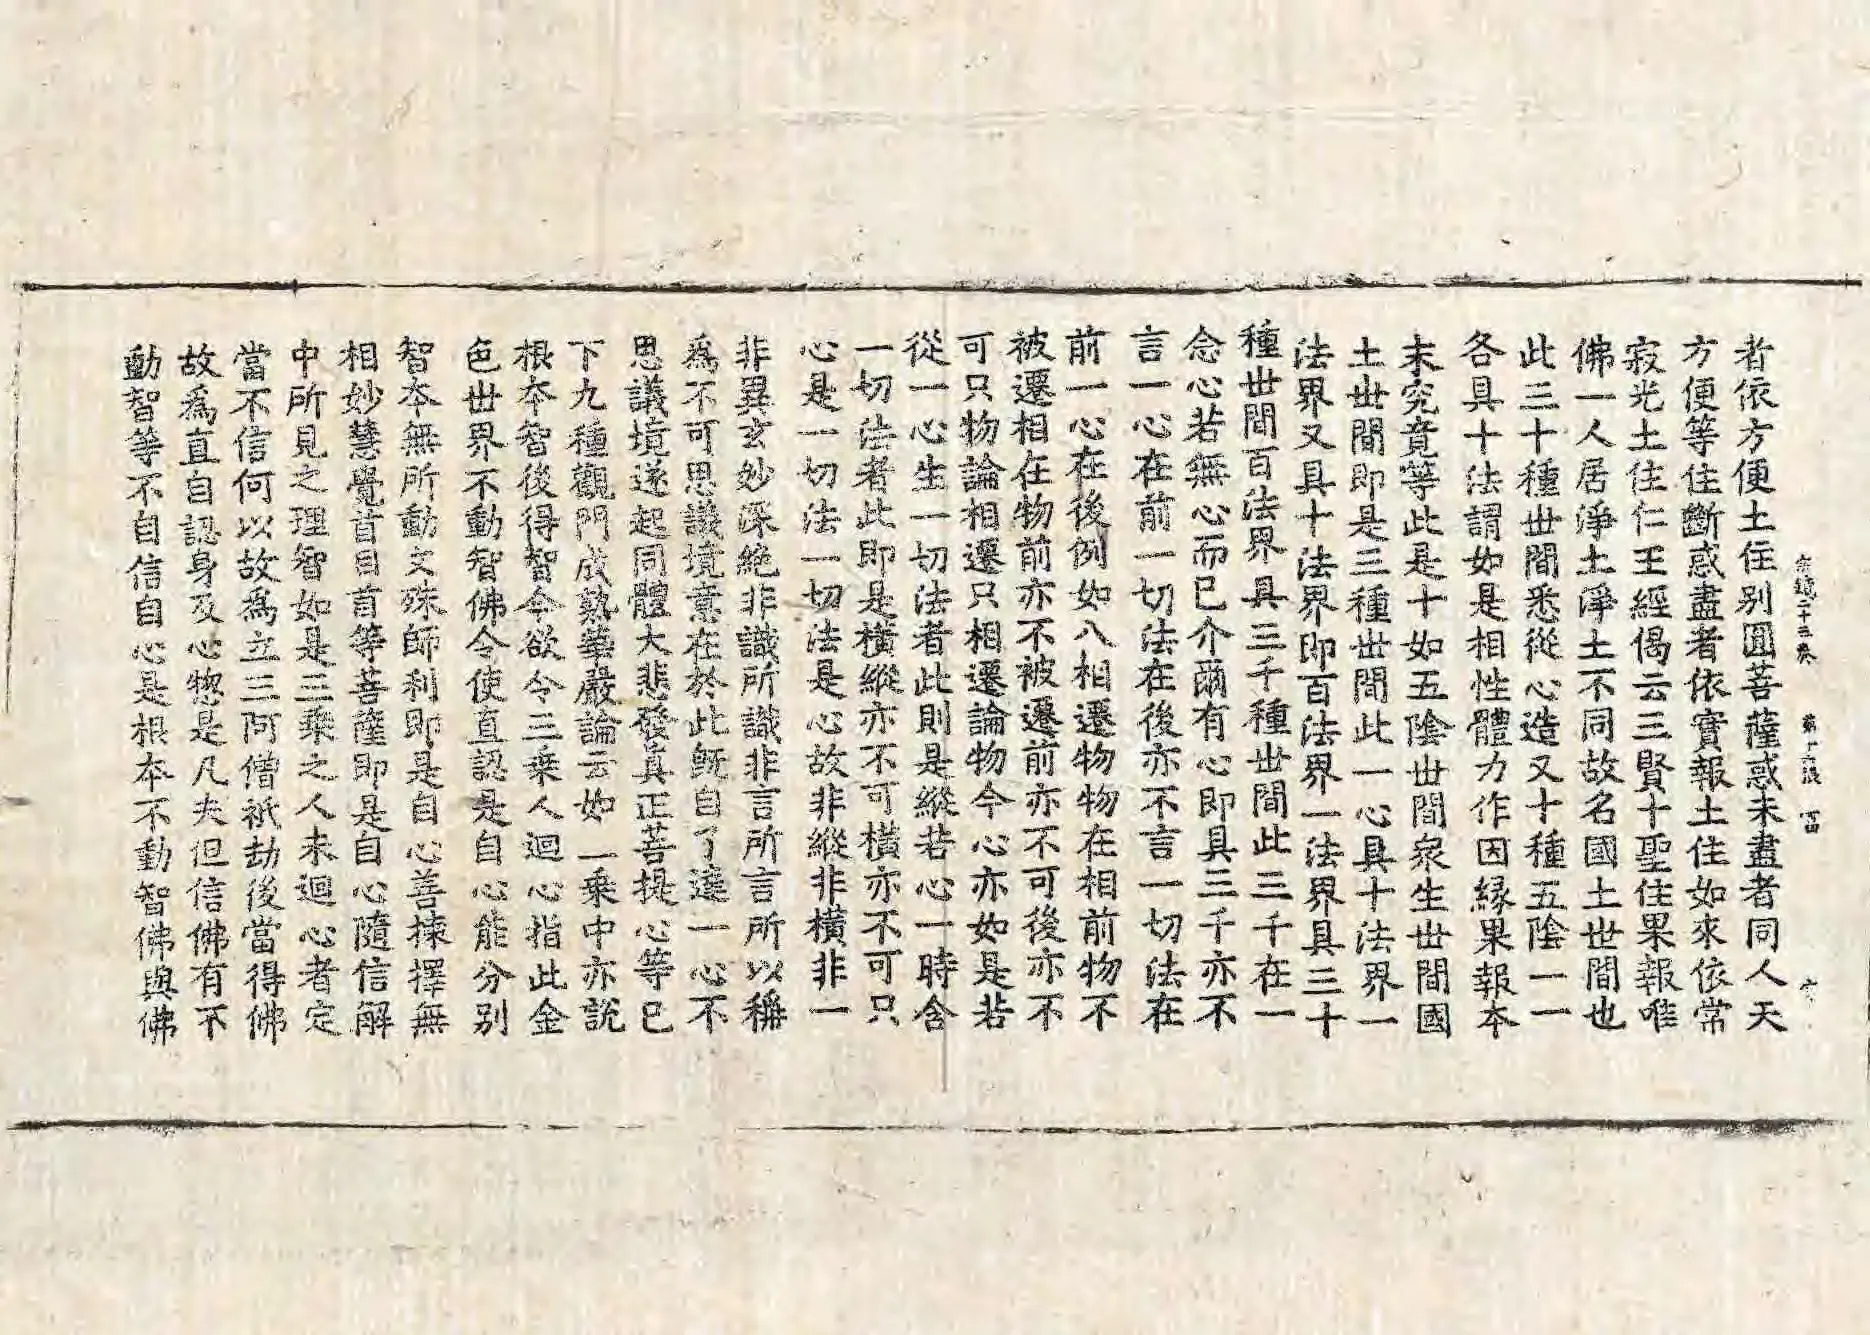 者依方便土住別圓菩薩惑未盡者同人天
宗鏡二十三卷 第十六張 㐁
方便等住斷惑盡者依實報土住如來依常
寂光土住仁王經偈云三賢十聖住果報唯
佛一人居淨土淨土不同故名國土世間也
此三十種世間悉從心造又十種五陰一一
各具十法謂如是相性體力作因緣果報本
末究竟等此是十如五陰世間衆生世間國
土世間即是三種世間此一心具十法界一
法界又具十法界即百法界一法界具三十
種世間百法界具三千種世間此三千在一
念心若無心而已介爾有心即具三千亦不
言一心在前一切法在後亦不言一切法在
前一心在後例如八相遷物物在相前物不
被遷相在物前亦不被遷前亦不可後亦不
可只物論相遷只相遷論物今心亦如是若
從一心生一切法者此則是縱若心一時含
一切法者此即是橫縱亦不可橫亦不可只
心是一切法一切法是心故非縱非橫非一
非異玄妙深絕非識所識非言所言所以稱
爲不可思議境意在於此旣自了達一心不
思議境遂起同體大悲發真正菩提心等已
下九種觀門成熟華嚴論云如一乘中亦說
根本智後得智今欲令三乘人迴心指此金
色世界不動智佛令使直認是自心能分別
智本無所動文殊師利即是自心善揀擇無
相妙慧覺首目首等菩薩即是自心隨信解
中所見之理智如是三乘之人未迴心者定
當不信何以故爲立三阿僧祇劫後當得佛
故爲直自認身及心惣是凡夫但信佛有不
動智等不自信自心是根本不動智佛與佛